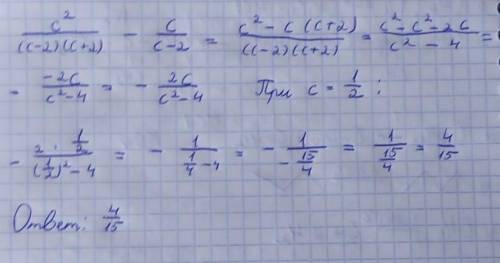 c²/((c-2)(c+2)) - c/(c-2) = (c² - c(c+2))/((c-2)(c+2)) = (c² - c² - 2c)/(c² - 4) =
= -2c/(c²-4) = - 2c/(c²-4) При c = 1/2 :
- (2 · 1/2)/((1/2)² - 4) = - 1/(1/4 - 4) = - 1/(- 15/4) = 1/(15/4) = 4/15
Ответ: 4/15